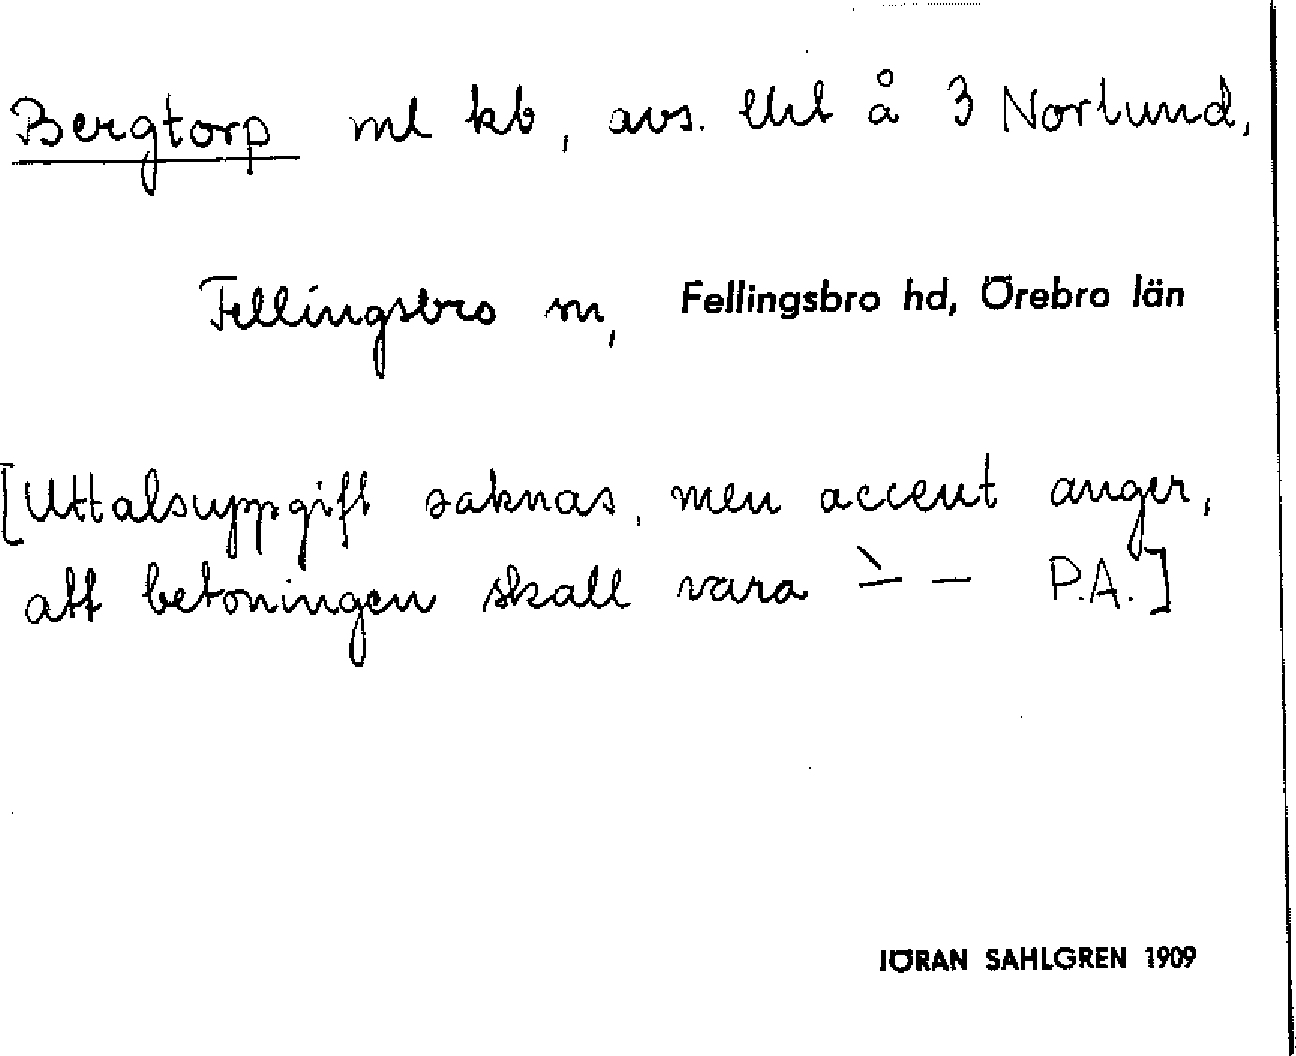 Bergtorp ml kb, avs. lht å 3 Norlund,
Fellingsbro sn, Fellingsbro hd, Örebro län
[Uttalsuppgift saknas, men accent anger,
att betoningen skall vara –̀ – P.A.]
JÖRAN SAHLGREN 1909